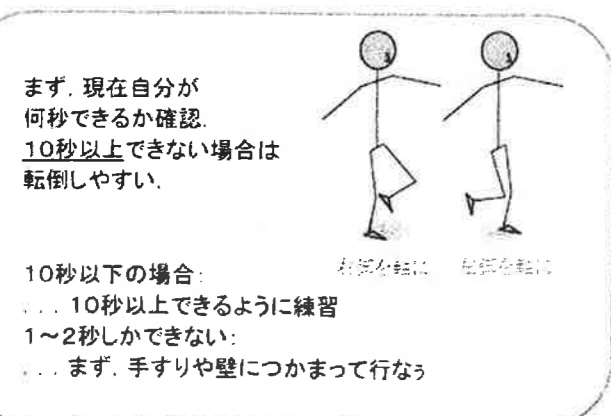 まず．現在自分が
何秒できるか確認．
10秒以上できない場合は
転倒しやすい．
右脚を軸に　左脚を軸に
10秒以下の場合：
．．．10秒以上できるように練習
1～2秒しかできない：
．．．まず．手すりや壁につかまって行なぅ